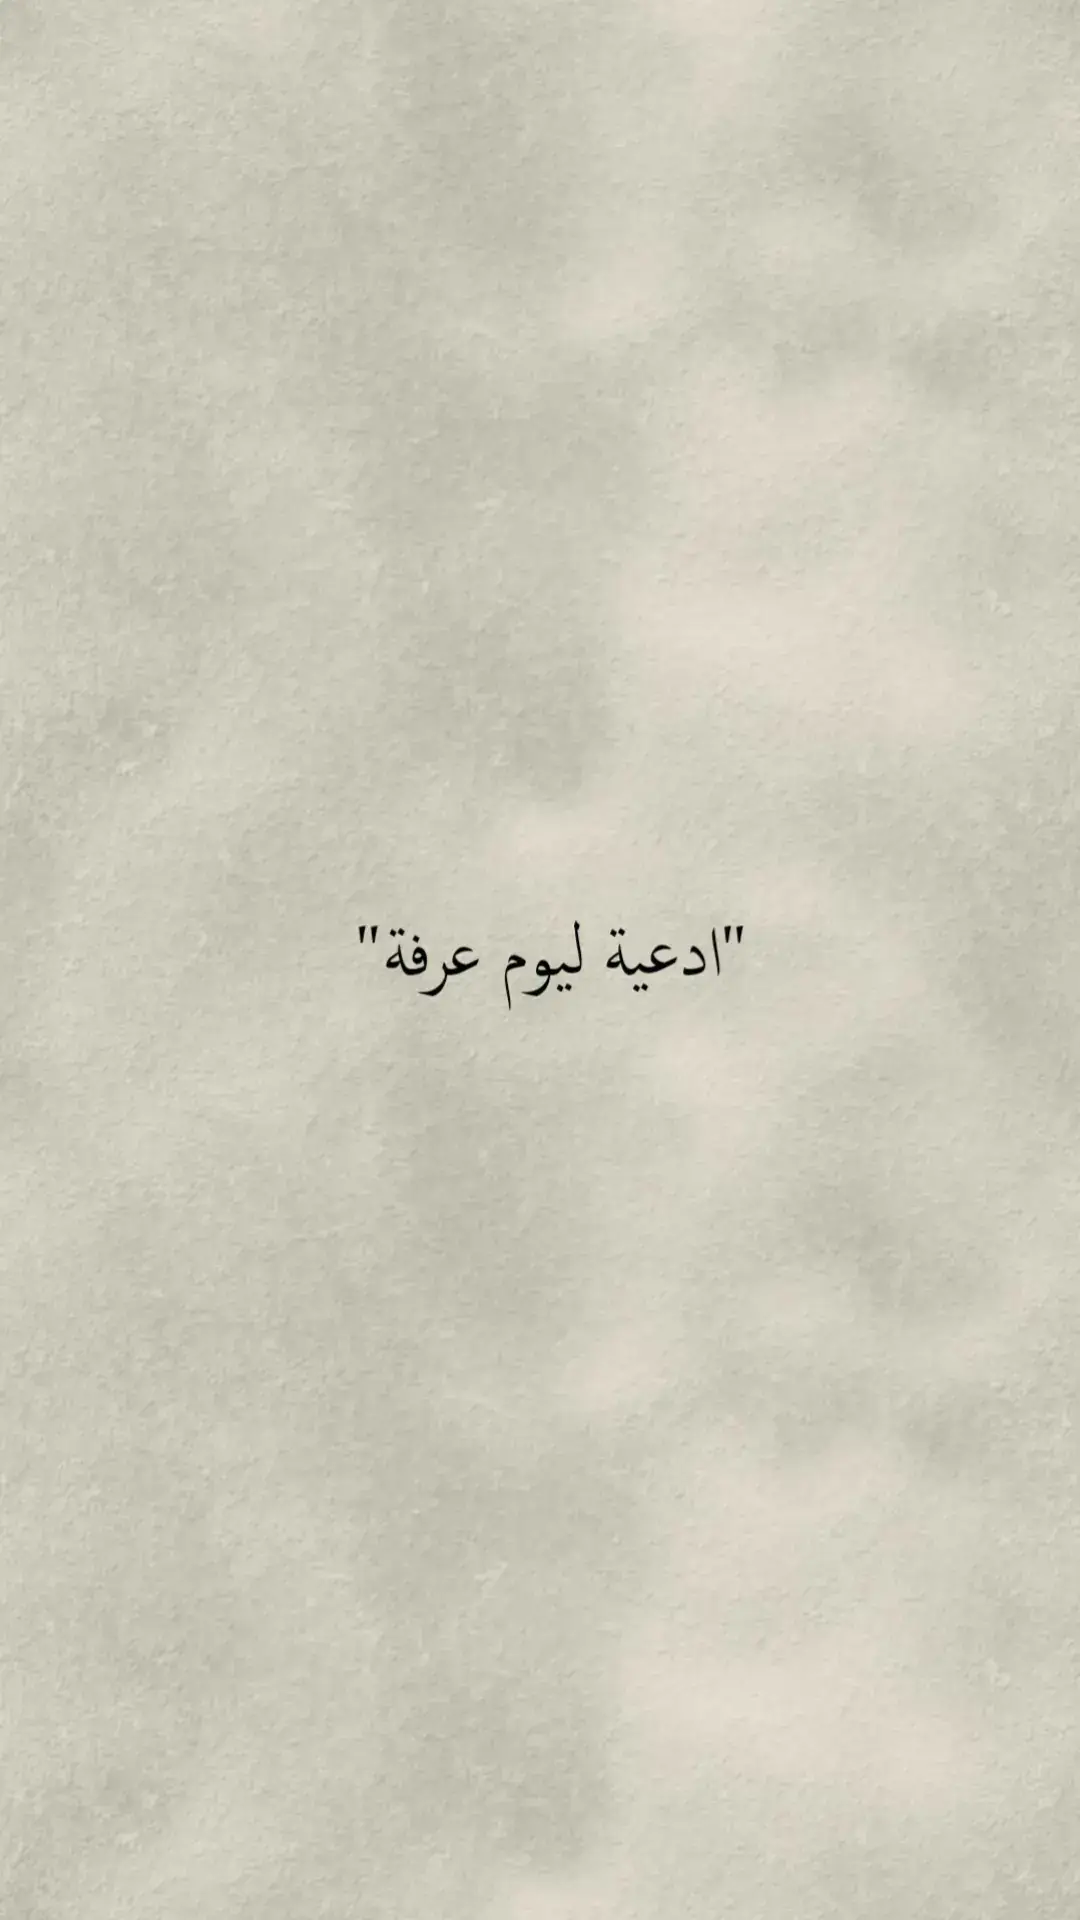 "ادعية ليوم عرفة"